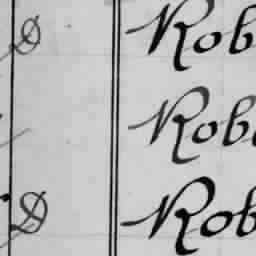 D Rob
Rob
D Rob